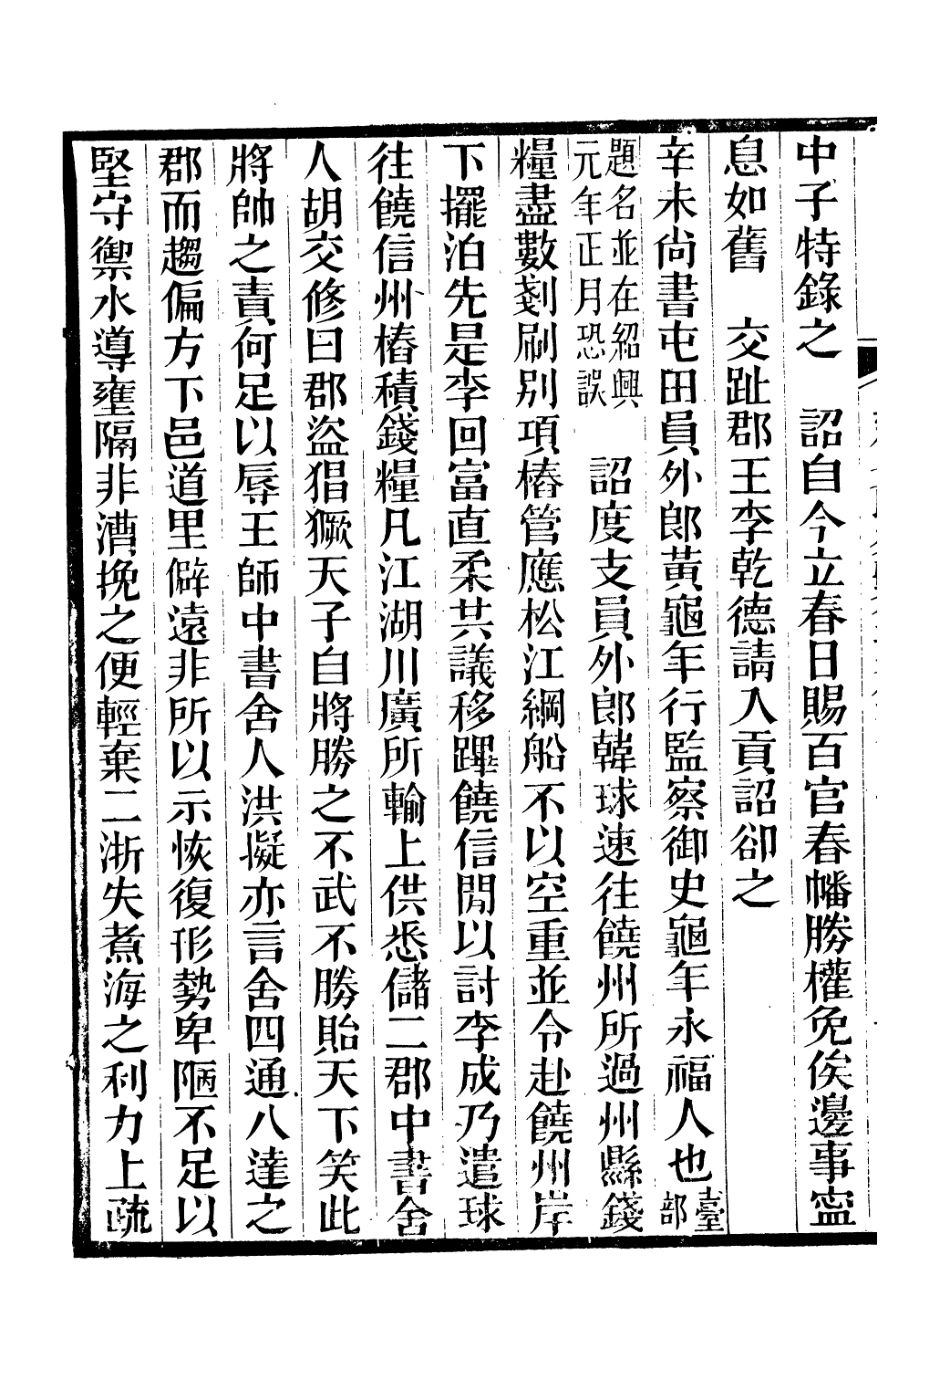 中子特錄之　詔自今立春日賜百官春幡勝權免俟邊事寧
息如舊　交趾郡王李乾德請入貢詔卻之
辛未尚書屯田員外郎黃龜年行監察御史龜年永福人也臺部
題名並在紹興元年正月恐誤　詔度支員外郎韓球速往饒州所過州縣錢
糧盡數剗刷別項樁管應松江綱船不以空重並令赴饒州岸
下擺泊先是李回富直柔共議移蹕饒信閒以討李成乃遣球
往饒信州樁積錢糧凡江湖川廣所輸上供悉儲二郡中書舍
人胡交修曰郡盜猖獗天子自將勝之不武不勝貽天下笑此
將帥之責何足以辱王師中書舍人洪擬亦言舍四通八達之
郡而趨偏方下邑道里僻遠非所以示恢復形勢卑陋不足以
堅守禦水導壅隔非漕挽之便輕棄二浙失煮海之利力上疏